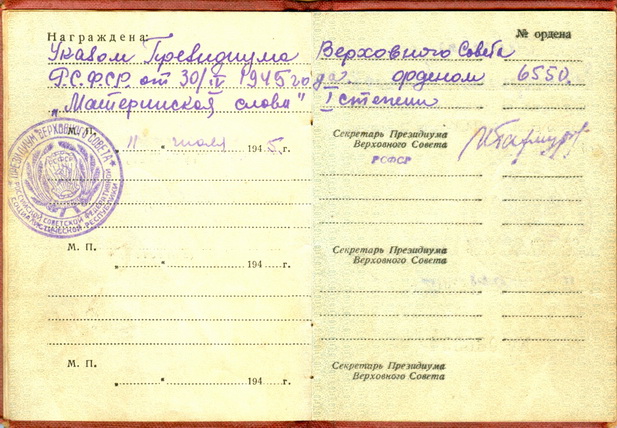 Награждена: № ордена
Указом Президиума Верховного Совета
Р.С.Ф.С.Р. от 30/IV 1945 года. орденом 6550
„Материнская слава" I степени
М. П. „11" июля 1945г. Секретарь Президиума
Верховного Совета
РСФСР
ПРЕЗИДИУМ ВЕРХОВНОГО СОВЕТА
РОССИЙСКОЙ СОВЕТСКОЙ ФЕДЕРАТИВНОЙ
СОЦИАЛИСТИЧЕСКОЙ РЕСПУБЛИКИ
М. П. Секретарь Президиума
Верховного Совета
„ " 194 г.
М. П. Секретарь Президиума
Верховного Совета
„ " 194 г.